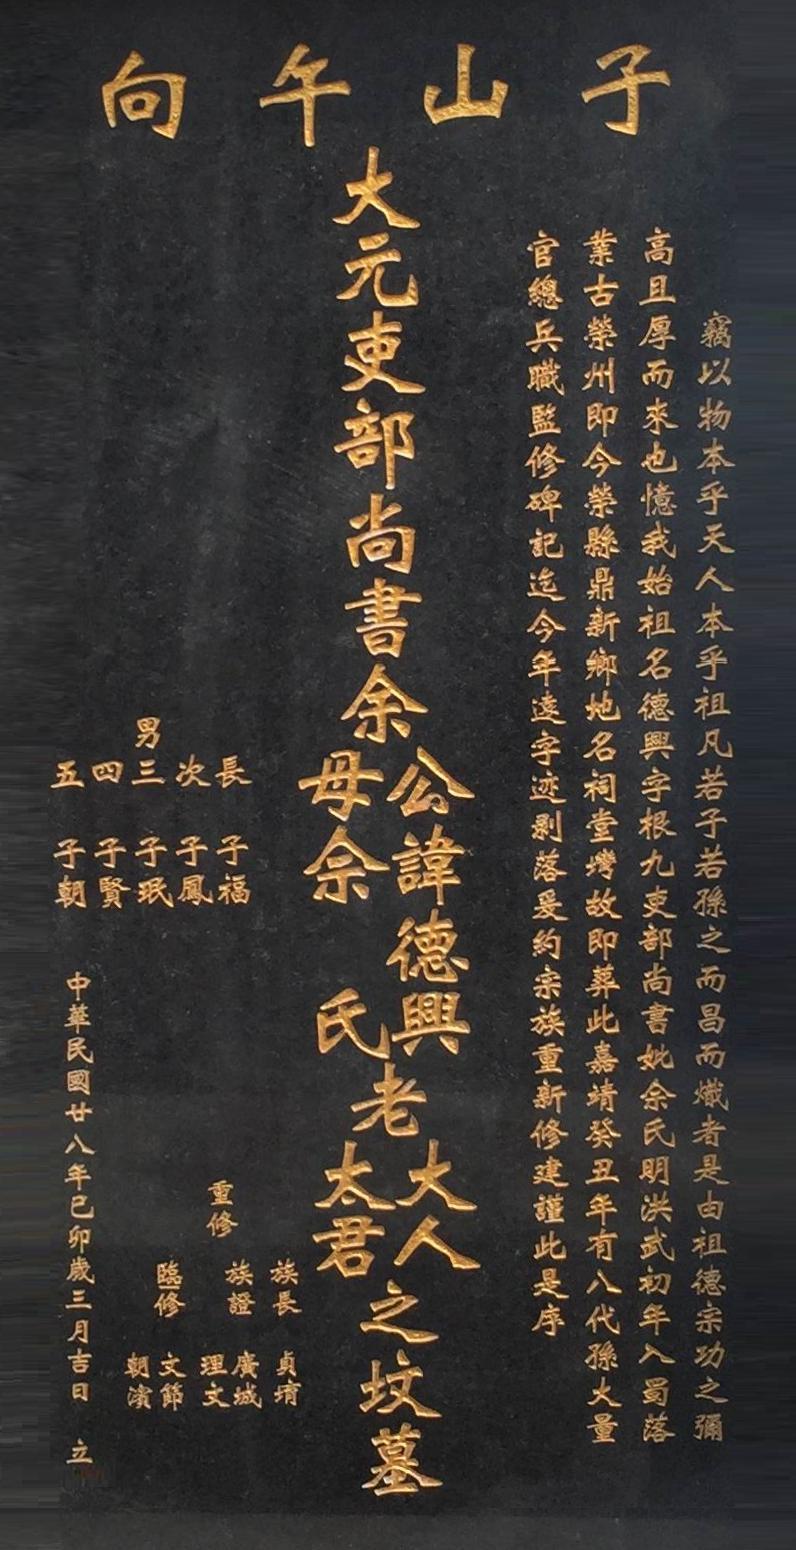 子山午向
竊以物本乎天人本乎祖凡若子若孫之而昌而熾者是由祖德宗功之彌
高且厚而來也憶我始祖名德興字根九吏部尚書妣余氏明洪武初年入蜀落
業古榮州即今榮縣鼎新鄉地名祠堂塆故即葬此嘉靖癸丑年有八代孫大量
官總兵職監修碑記迄今年遠字迹剥落爰約宗族重新修建謹此是序
大元吏部尚書余
公諱德興
母余氏
老
大人
太君
之坟墓
族長 貞堉
族證 廣城 理文
重修
臨修 文節 朝濱
男
長 子福
次 子鳳
三 子珉
四 子賢
五 子朝
中華民國廿八年己卯歲三月吉日 立